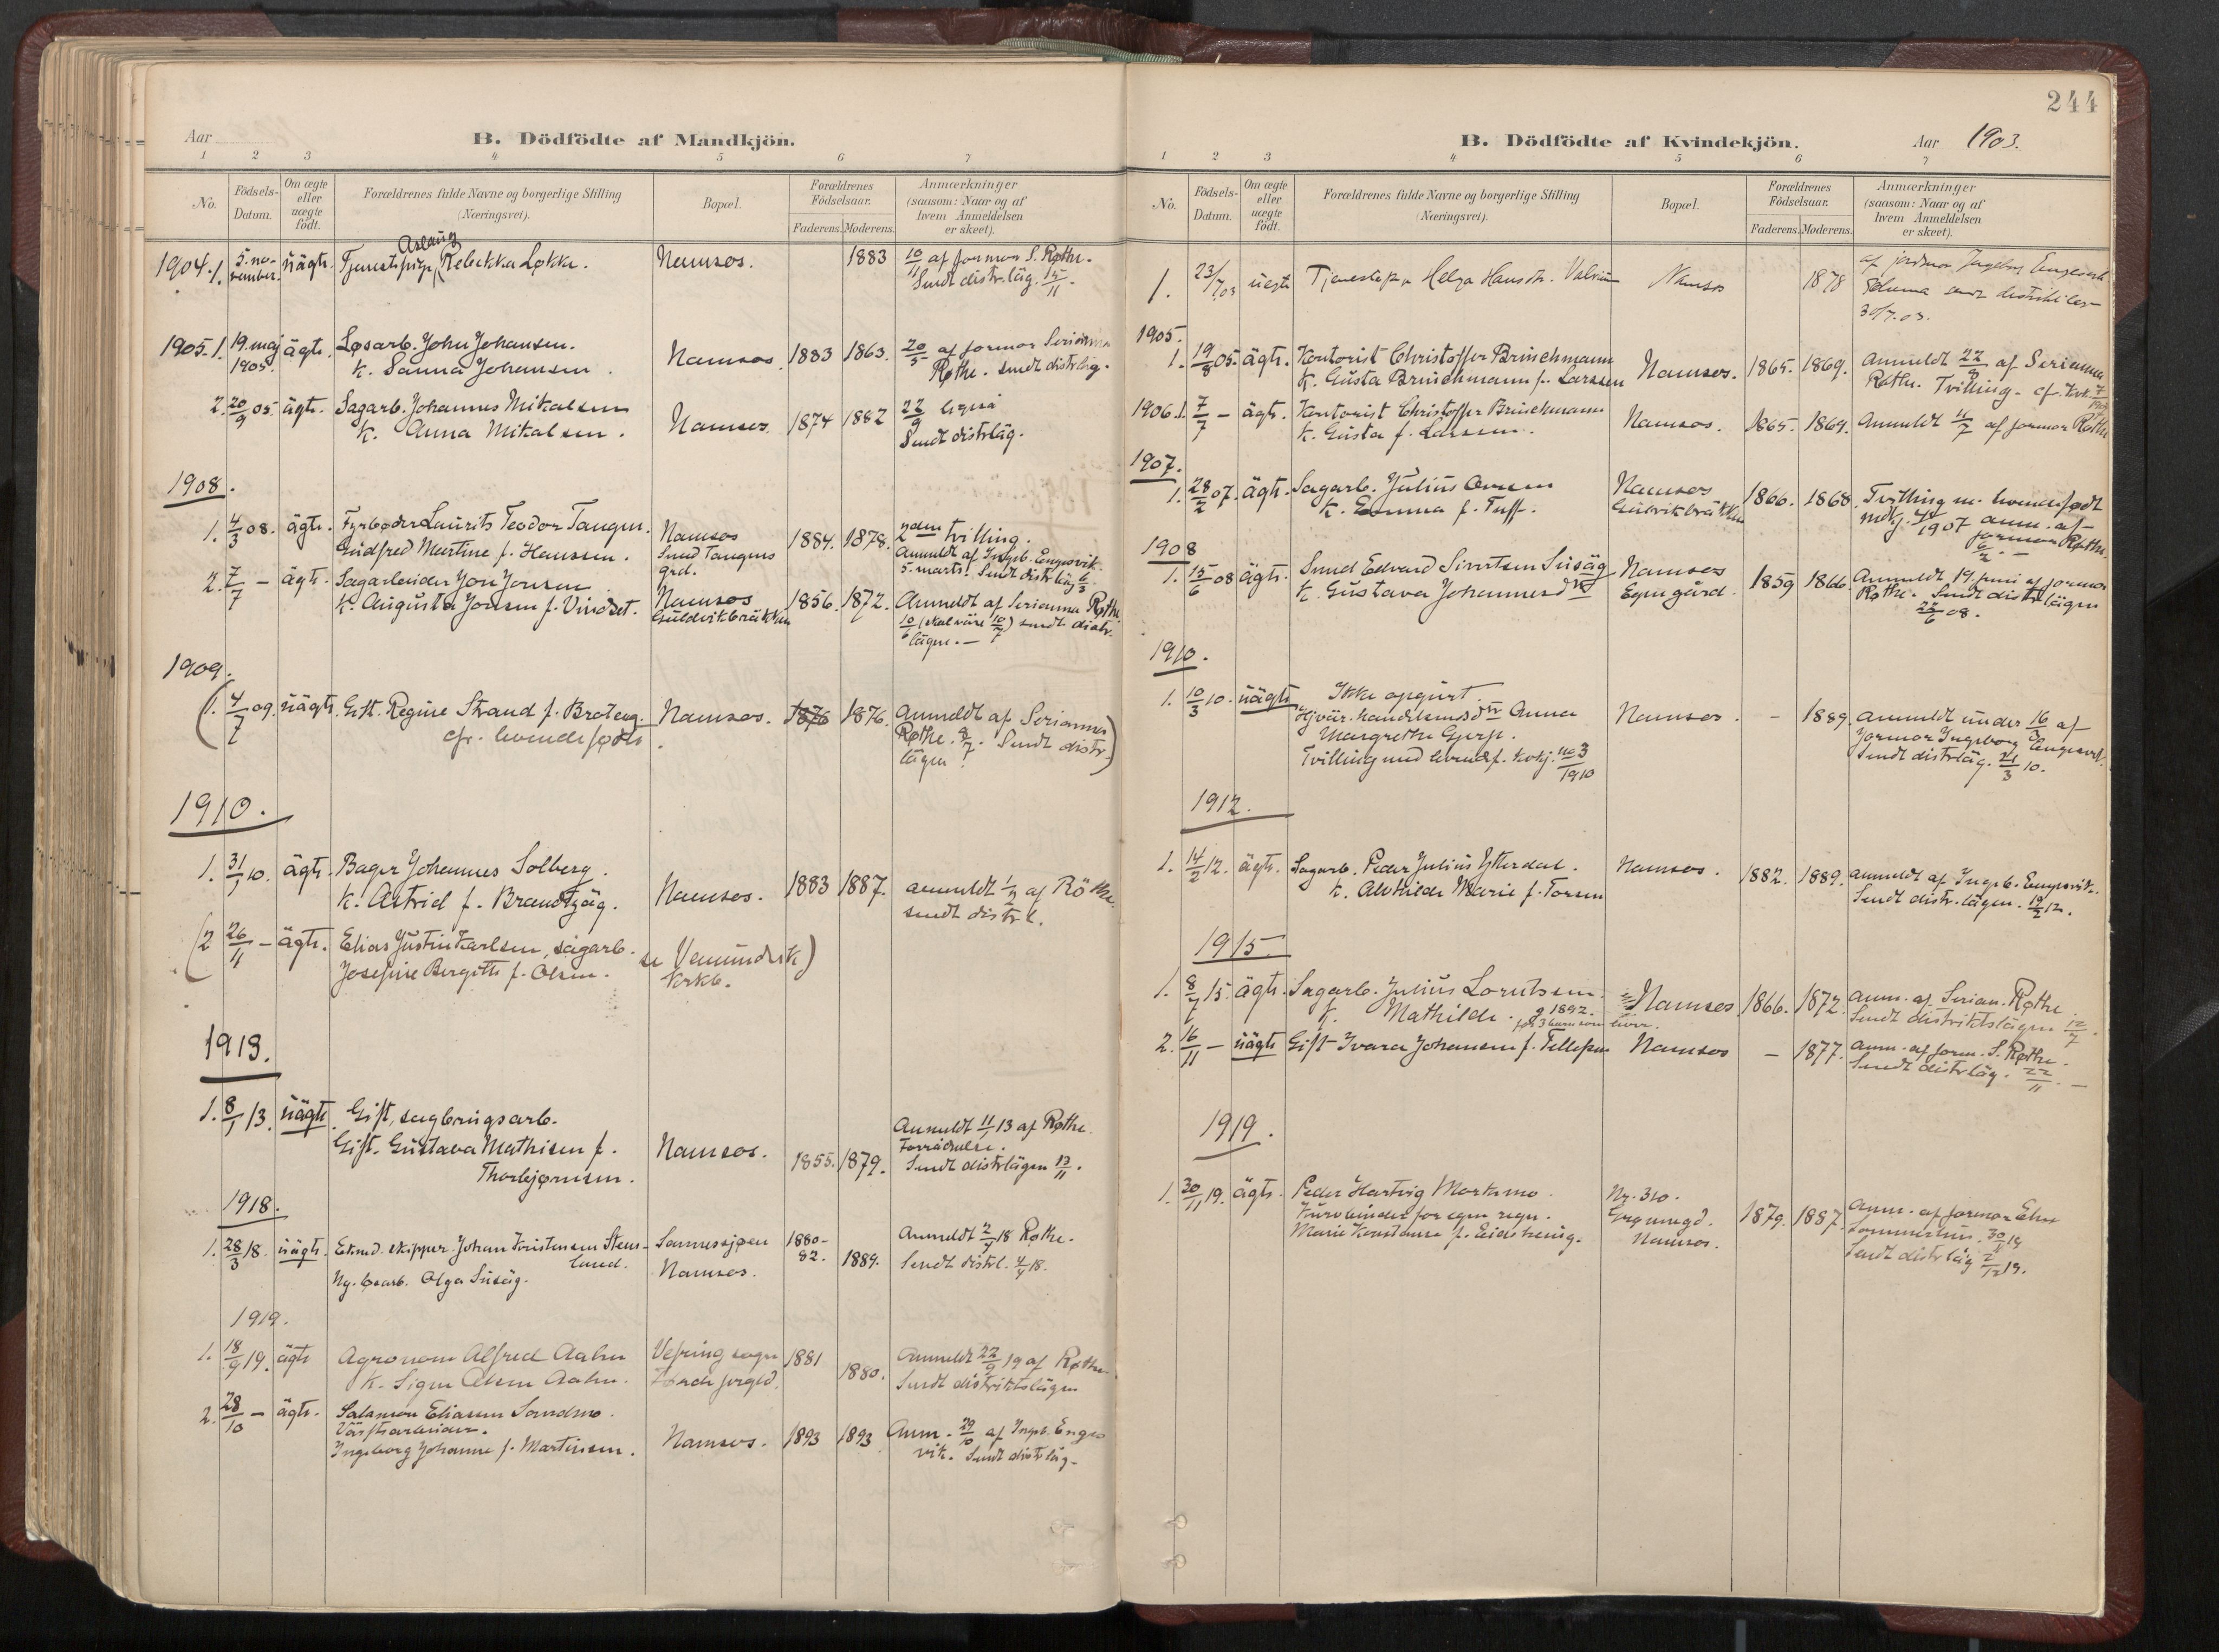 Aar
B. Dödfödte af Mandkjön.
1 2 3 4 5 6 7
No.
Födsels-
Datum.
Om ægte
eller
uægte
födt.
Forældrenes fulde Navne og borgerlige Stilling
(Næringsvei).
Bopæl.
Forældrenes
Födselsaar.
Faderens. Moderens.
Anmærkninger
(saasom: Naar og af
hvem Anmeldelsen
er skeet).
1904. 1. 5. no-
vember. uägte Tjenestepige Aslaug Rebekka Løkke. Namsos. 1883 10/11 af jormor S. Røthe.
Sendt distr.läg. 15/11.
1905. 1. 19. maj
1905. ägte. Løsarb. John Johansen.
k. Sanna Johansen. Namsos. 1883 1863. 20/5 af jormor Serianna
Røthe. sendt distrläg.
2. 20/9 05. ägte. Sagarb. Johannes Mikalsen
k. Anna Mikalsen. Namsos. 1874 1882 22/9
Sendt distrläg.
1908.
1. 4/3 08. ägte. Fyrbøder Laurits Teodor Tangen.
Gudfred Martine f. Hanssen. Namsos
Smed Tangens
grd. 1884. 1878. 2den tvilling.
Anmeldt af Ingeb. Engesvik.
5. marts. Sendt distrläg 6/3.
2. 7/7 - ägte. Sagarbeider Jon Jonsen
k. Augusta Jonsen f. Namsos
Guldvikbräkken 1856. 1872. Anmeldt af Serianna Røthe
10/6 (skal väre 10/7) sendt distr.
lägen. —
1909.
(1. 4/7 09. uägte. Gift. Regine Strand f. Broteng.
cfr. levendefødte. Namsos. 1876 1876. Anmeldt af Serianna
Røthe. 8/7. Sendt distr-
lägen!)
1910.
1. 31/1 10. ägte. Bager Johannes Solberg.
k. Astrid f. Brandtzäg. Namsos. 1883 1887. anmeldt 1/2 af Röthe.
sendt distrl.
(2 26/11 - ägte. Elias Justin Karlsen, sagarb.
Josefine Bergitte f. Olsen. se Vemundvik)
krkb.
1913.
1. 8/1 13. uägte. Gift, sagbrugsarb.
Gift. Gustava Mathisen f.
Thorbjørnsen. Namsos. 1855. 1879. Anmeldt 11/1 13 af Røthe.
Forrådnelse.
Sendt distrlägen 13/11.
1918.
1. 28/3 18. uägte. Enkmd. skipper Johan Kristensen Stens-
land.
Ny. bearb. Olga Susäg. Sannessjøen
Namsos. 1880-
82. 1889. Anmeldt 2/4 18 Røthe.
Sendt distrl. 4/4 18.
1919.
1. 18/9 19. ägte Agronom Alfred Aakre
k. Signe Olsen Aakre. Vefring sogn 1881 1880. Anmeldt 22/9 19 af Røthe.
Sendt distriktslägen
2. 28/10 - ägte. Salamon Eliasen Sandmo.
Värftsarbeider.
Ingeborg Johanne f. Martinsen. Namsos. 1893 1893 Anm. 29/10 af Ingeb. Enges
vik. Sendt distrläg.
244
B. Dödfödte af Kvindekjön.
Aar 1903.
1 2 3 4 5 6 7
No.
Födsels-
Datum.
Om ægte
eller
uægte
födt.
Forældrenes fulde Navne og borgerlige Stilling
(Næringsvei).
Bopæl.
Forældrenes
Födselsaar.
Faderens. Moderens.
Anmærkninger
(saasom: Naar og af
hvem Anmeldelsen
er skeet).
1. 23/7 03 uegte Tjenestep. Helga Hansdtr. Namsos 1878 af jordmor Ingeborg Engesvik
30/7.03.
1905.
1. 19/8 05. ägte. Kontorist Christoffer Brinchmann
k. Gusta Brinchmann f. Larssen Namsos. 1865. 1869. Anmeldt 22/8 af Serianna
Røthe. Tvilling. cf.
1906. 1. 7/7 - ägte. Kontorist Christoffer Brinchmann
k. Gusta f. Larssen. Namsos. 1865. 1869. Anmeldt 11/7 af jormor Røthe
1907.
1. 28/2 07. ägte. Sagarb. Julius
k. Emma f. Tuff. Namsos
Gulvikbräkken 1866. 1868. Tvilling m. levendefødt
1907 anm. af
jormor Røthe.
1908
1. 15/6 08 ägte. Smed Edvard Sivertsen Susäg
k. Gustava Johannesdtr Namsos
Egen gård. 1859 1866. Anmeldt 19. juni af jormor
Røthe. Sendt distrlägen
22/6 08.
1910.
1. 10/3 10. uägte Ikke opgivet.
Hjvär. handelsmdsdtr Anna
Margrethe Gjerp.
Tvilling med levendef. kvkj. no 3
1910 Namsos. - 1889. anmeldt under 16/3 af
jormor Ingeborg Engesvik.
Sendt distrläg. 21/3 10.
1912.
1. 14/2 12. ägte. Sagarb. Peder Julius Ytterdal.
k. Alethilde Marie f. Namsos. 1882. 1889. anmeldt af Ingeb. Engesvik.
Sendt distr.lägen. 19/2 12.
1915.
1. 8/7 15. ägte. Sagarb. Julius Lorntsen.
k. Mathilde. g 1892.
før 3 barn som lever. Namsos 1866. 1872. anm. af Serian. Røthe.
Sendt distriktslägen 12/7.
2. 16/11 - uägte Gift Ivara Johansen f. Tellefsen Namsos - 1877. anm. af jorm. S. Røthe.
Sendt distrläg. 22/11. —
1919.
1. 30/11 19. ägte. Peder Hartvig Morkemo.
Kurvbinder for egen regn.
Marie Konstanse f. Nr. 310.
Namsos. 1879. 1887. Anm. af jormor
30/11 19
Sendt distrläg 2/12 19.